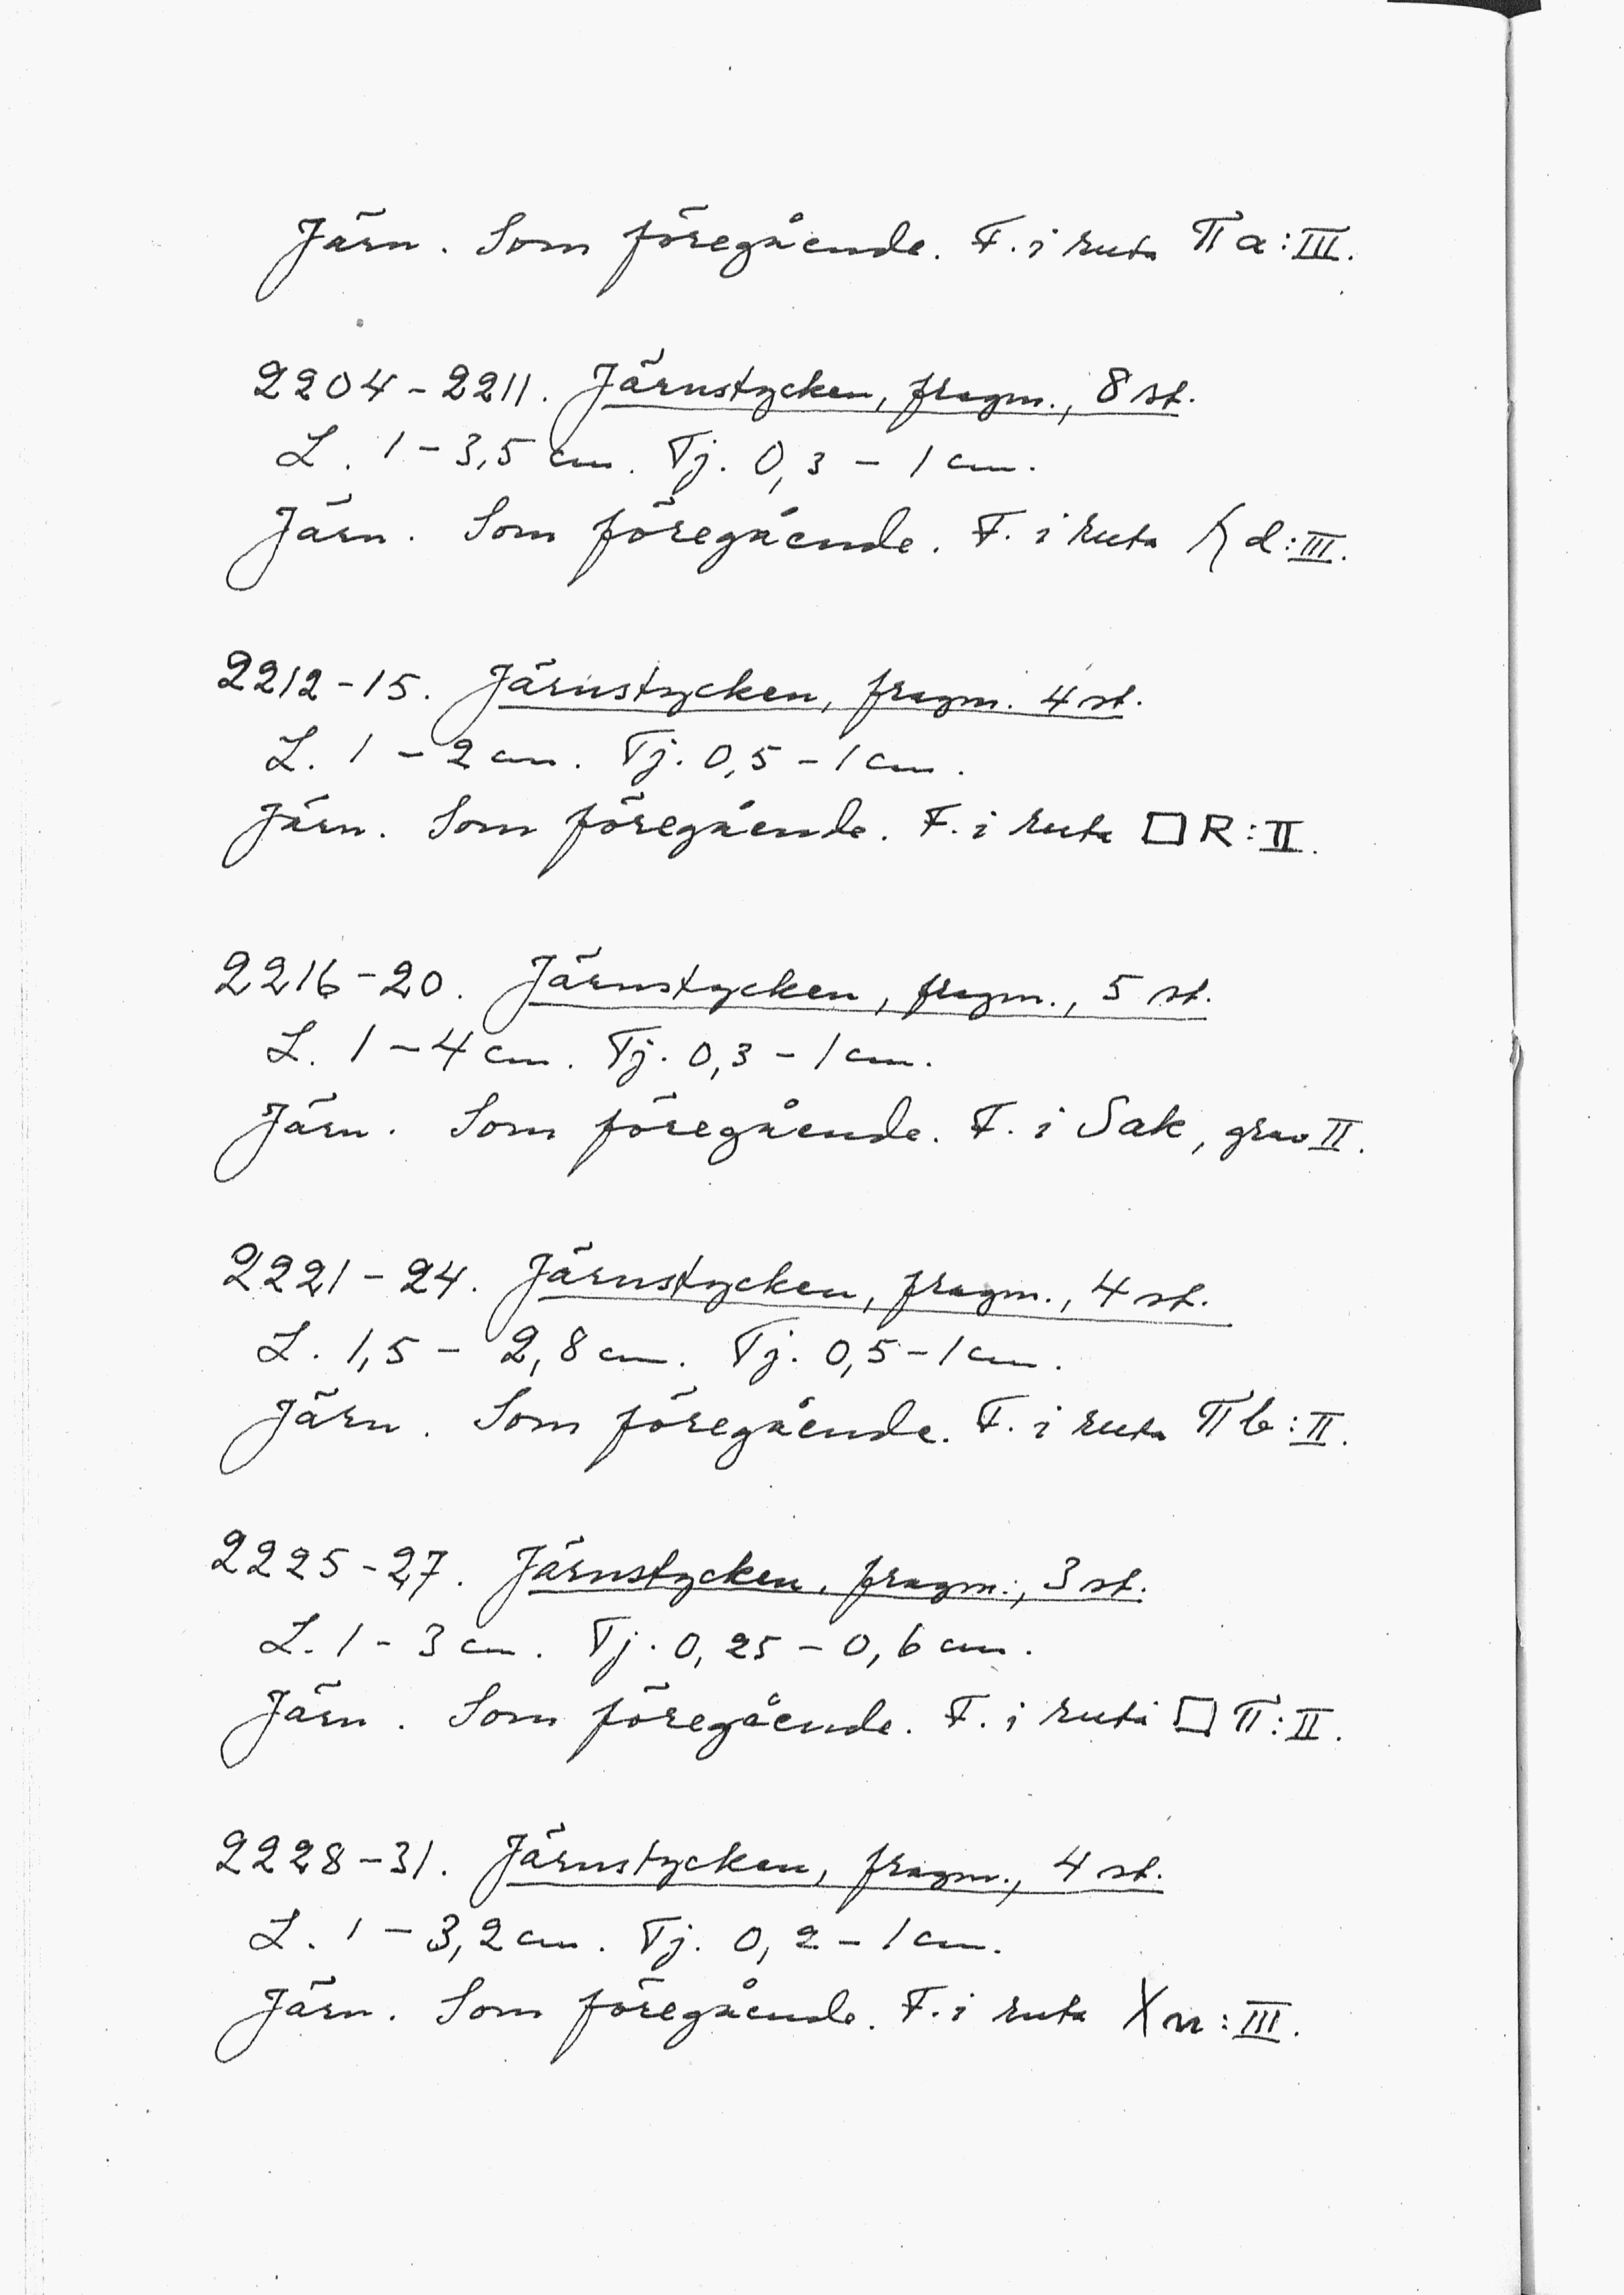 Järn. Som föregående. F. i ruta π a:III.
2204-2211. Järnstycken, fragm., 8 st.
L. 1-3,5 cm. Tj. 0,3 - 1 cm.
Järn. Som föregående. F. i ruta d:III.
2212-15. Järnstycken, fragm. 4 st.
L. 1 - 2 cm. Tj. 0,5 - 1 cm.
Järn. Som föregående. F. i ruta □ R:II.
2216-20. Järnstycken, fragm., 5 st.
L. 1 - 4 cm. Tj. 0,3 - 1 cm.
Järn. Som föregående. F. i Sak, grav II.
2221-24. Järnstycken, fragm., 4 st.
L. 1,5 - 2,8 cm. Tj. 0,5 - 1 cm.
Järn. Som föregående. F. i ruta π b:II.
2225-27. Järnstycken, fragm., 3 st.
L. 1 - 3 cm. Tj. 0,25 - 0,6 cm.
Järn. Som föregående. F. i ruta □ π:II.
2228-31. Järnstycken, fragm., 4 st.
L. 1 - 3,2 cm. Tj. 0,2 - 1 cm.
Järn. Som föregående. F. i ruta X n:III.